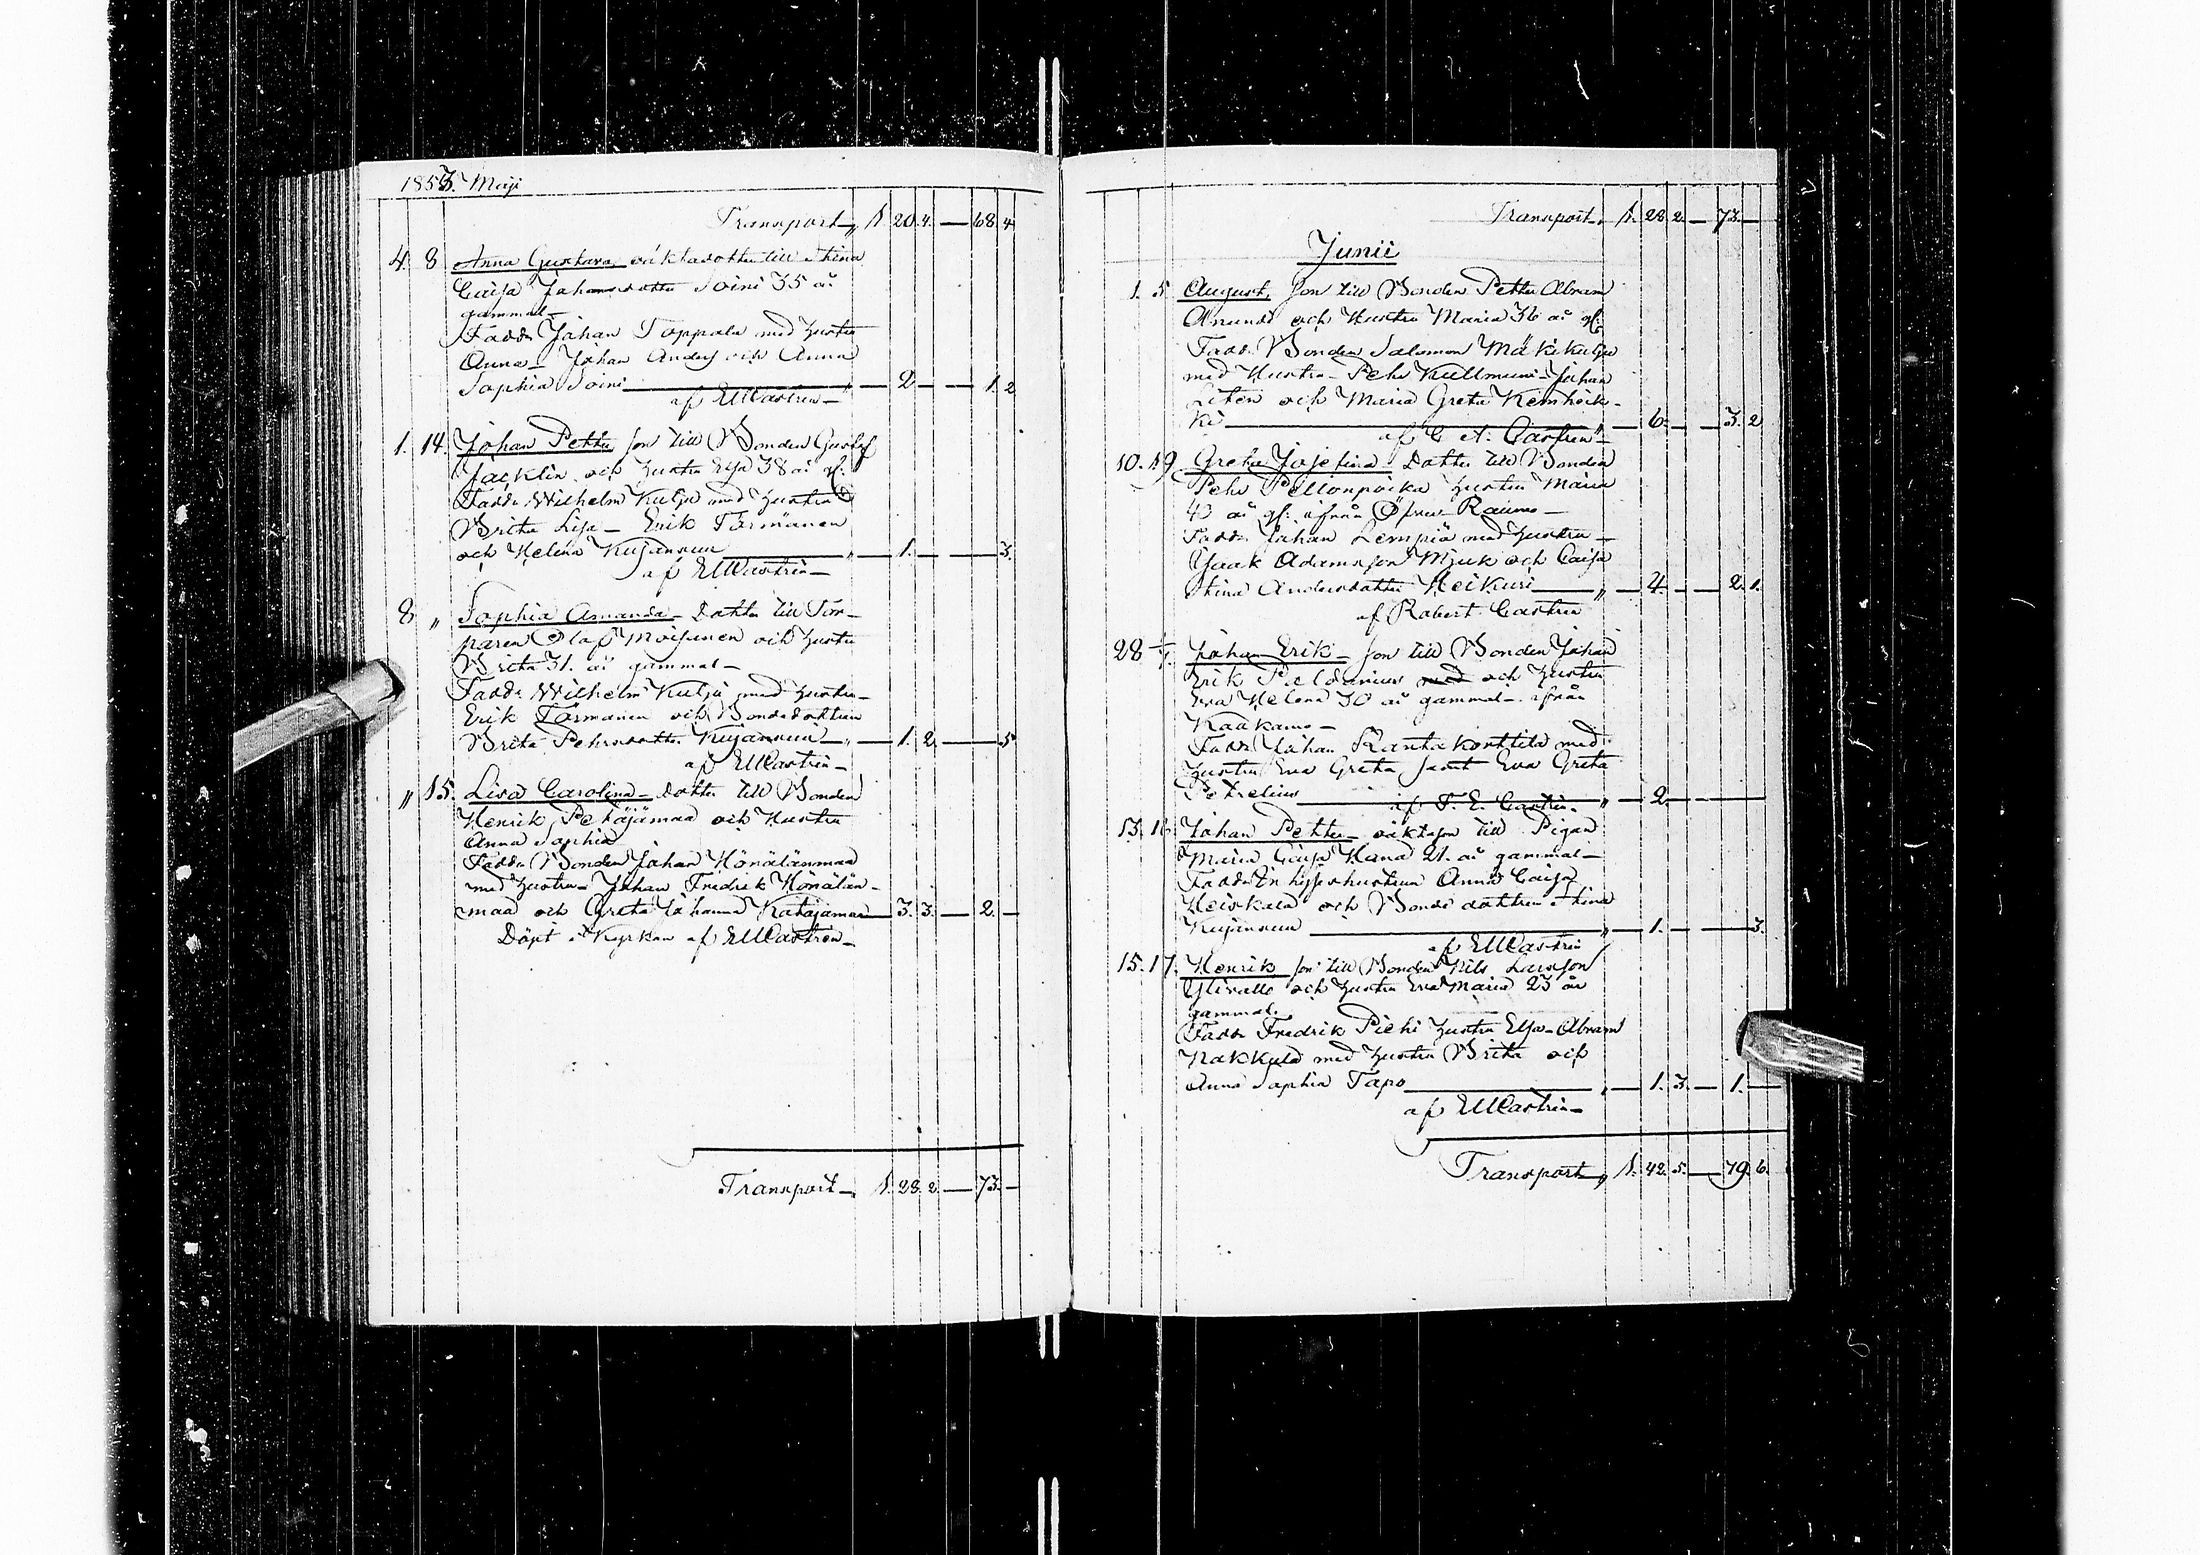 1853. Maji
Transport „ 1. 20. 4. — 68. 4
4. 8 Anna Gustava, oäktadotter till Stina
Caisa Johansdotter Soini 35 år
gammal —
Fadd. Johan Toppala med hustru
Anna — Johan Anders och Anna
Sophia Soini „ — 2 — — 1. 2
af EMCastrén —
1. 14. Johan Petter son till Bonden Gustaf
Jacklin och hustru Elsa 38 år gl.
Fadd. Wilhelm Kulju med hustru
Britha Lisa — Erik Törmänen
och Helena Kujansuu „ — 1. — — 3.
af EMCastrén —
8 „ Sophia Amanda — Dotter till Tor-
paren Olof Moisanen och hustru
Britha 31. år gammal —
Fadd. Wilhelm Kulju med hustru —
Erik Törmänen och Bondedottren
Brita Pehrsdotter Kujansuu — „ — 1. 2 — — 5
af EMCastrén —
„ 15. Lisa Carolina — Dotter till Bonden
Henrik Petäjämaa och Hustru
Anna Sophia
Fadd. Bonden Johan Hönälänmaa
med hustru — Johan Fredrik Hönälän-
maa och Greta Johanna Katajamaa — 3. 3. — 2. —
Döpt i Kyrkan af EMCastrén —
Transport — „ 1. 28. 2 — 73. —
Transport — „ 1. 28. 2. — 73. —
Junii
1. 5 August, son till Bonden Petter Abram
Anundi och Hustru Maria 36 år gl.
Fadd. Bonden Salomon Mäkikulju
med Hustru — Pehr Kullmuni — Johan
och Maria Greta
ki „ — 6. — — 3. 2
af C. A. Castrén —
10. 19 Greta Josefina — Dotter till Bonden
Pehr Pellonpoika hustru Maria
43 år gl. ifrån Öfver Raumo —
Fadd. Johan Lempiä med hustru —
Isaak Adamsson Mjuk och Caisa
Stina Andersdotter Heikuri „ — 4. — — 2. 1.
af Robert Castrén
28 Johan Erik — son till Bonden Johan
Erik med och hustru
Eva Helena 30 år gammal — ifrån
Kaakamo —
Fadd. Johan Rantakorttila med
hustru Eva Greta samt Eva Greta
Petrelius „ — 2. — —
af F. E. Castrén.
13. 16 Johan Petter — oäktason till Pigan
Maria Caisa Hana 21. år gammal —
Fadd. Inhyseshustrun Anna Caisa
Heiskala och Bonde dottren Stina
Kujansuu „ — 1. — — 3.
af EMCastrén
15. 17. Henrik son till Bonden Nils Larsson
Ylivalli och hustru Eva Maria 23 år
gammal.
Fadd. Fredrik Piehi hustru Elsa — Abram
Nakkula med hustru Brita och
Anna Sophia Tapo „ — 1. 3. — 1. —
af EMCastrén —
Transport „ 1. 42. 5. — 79. 6.